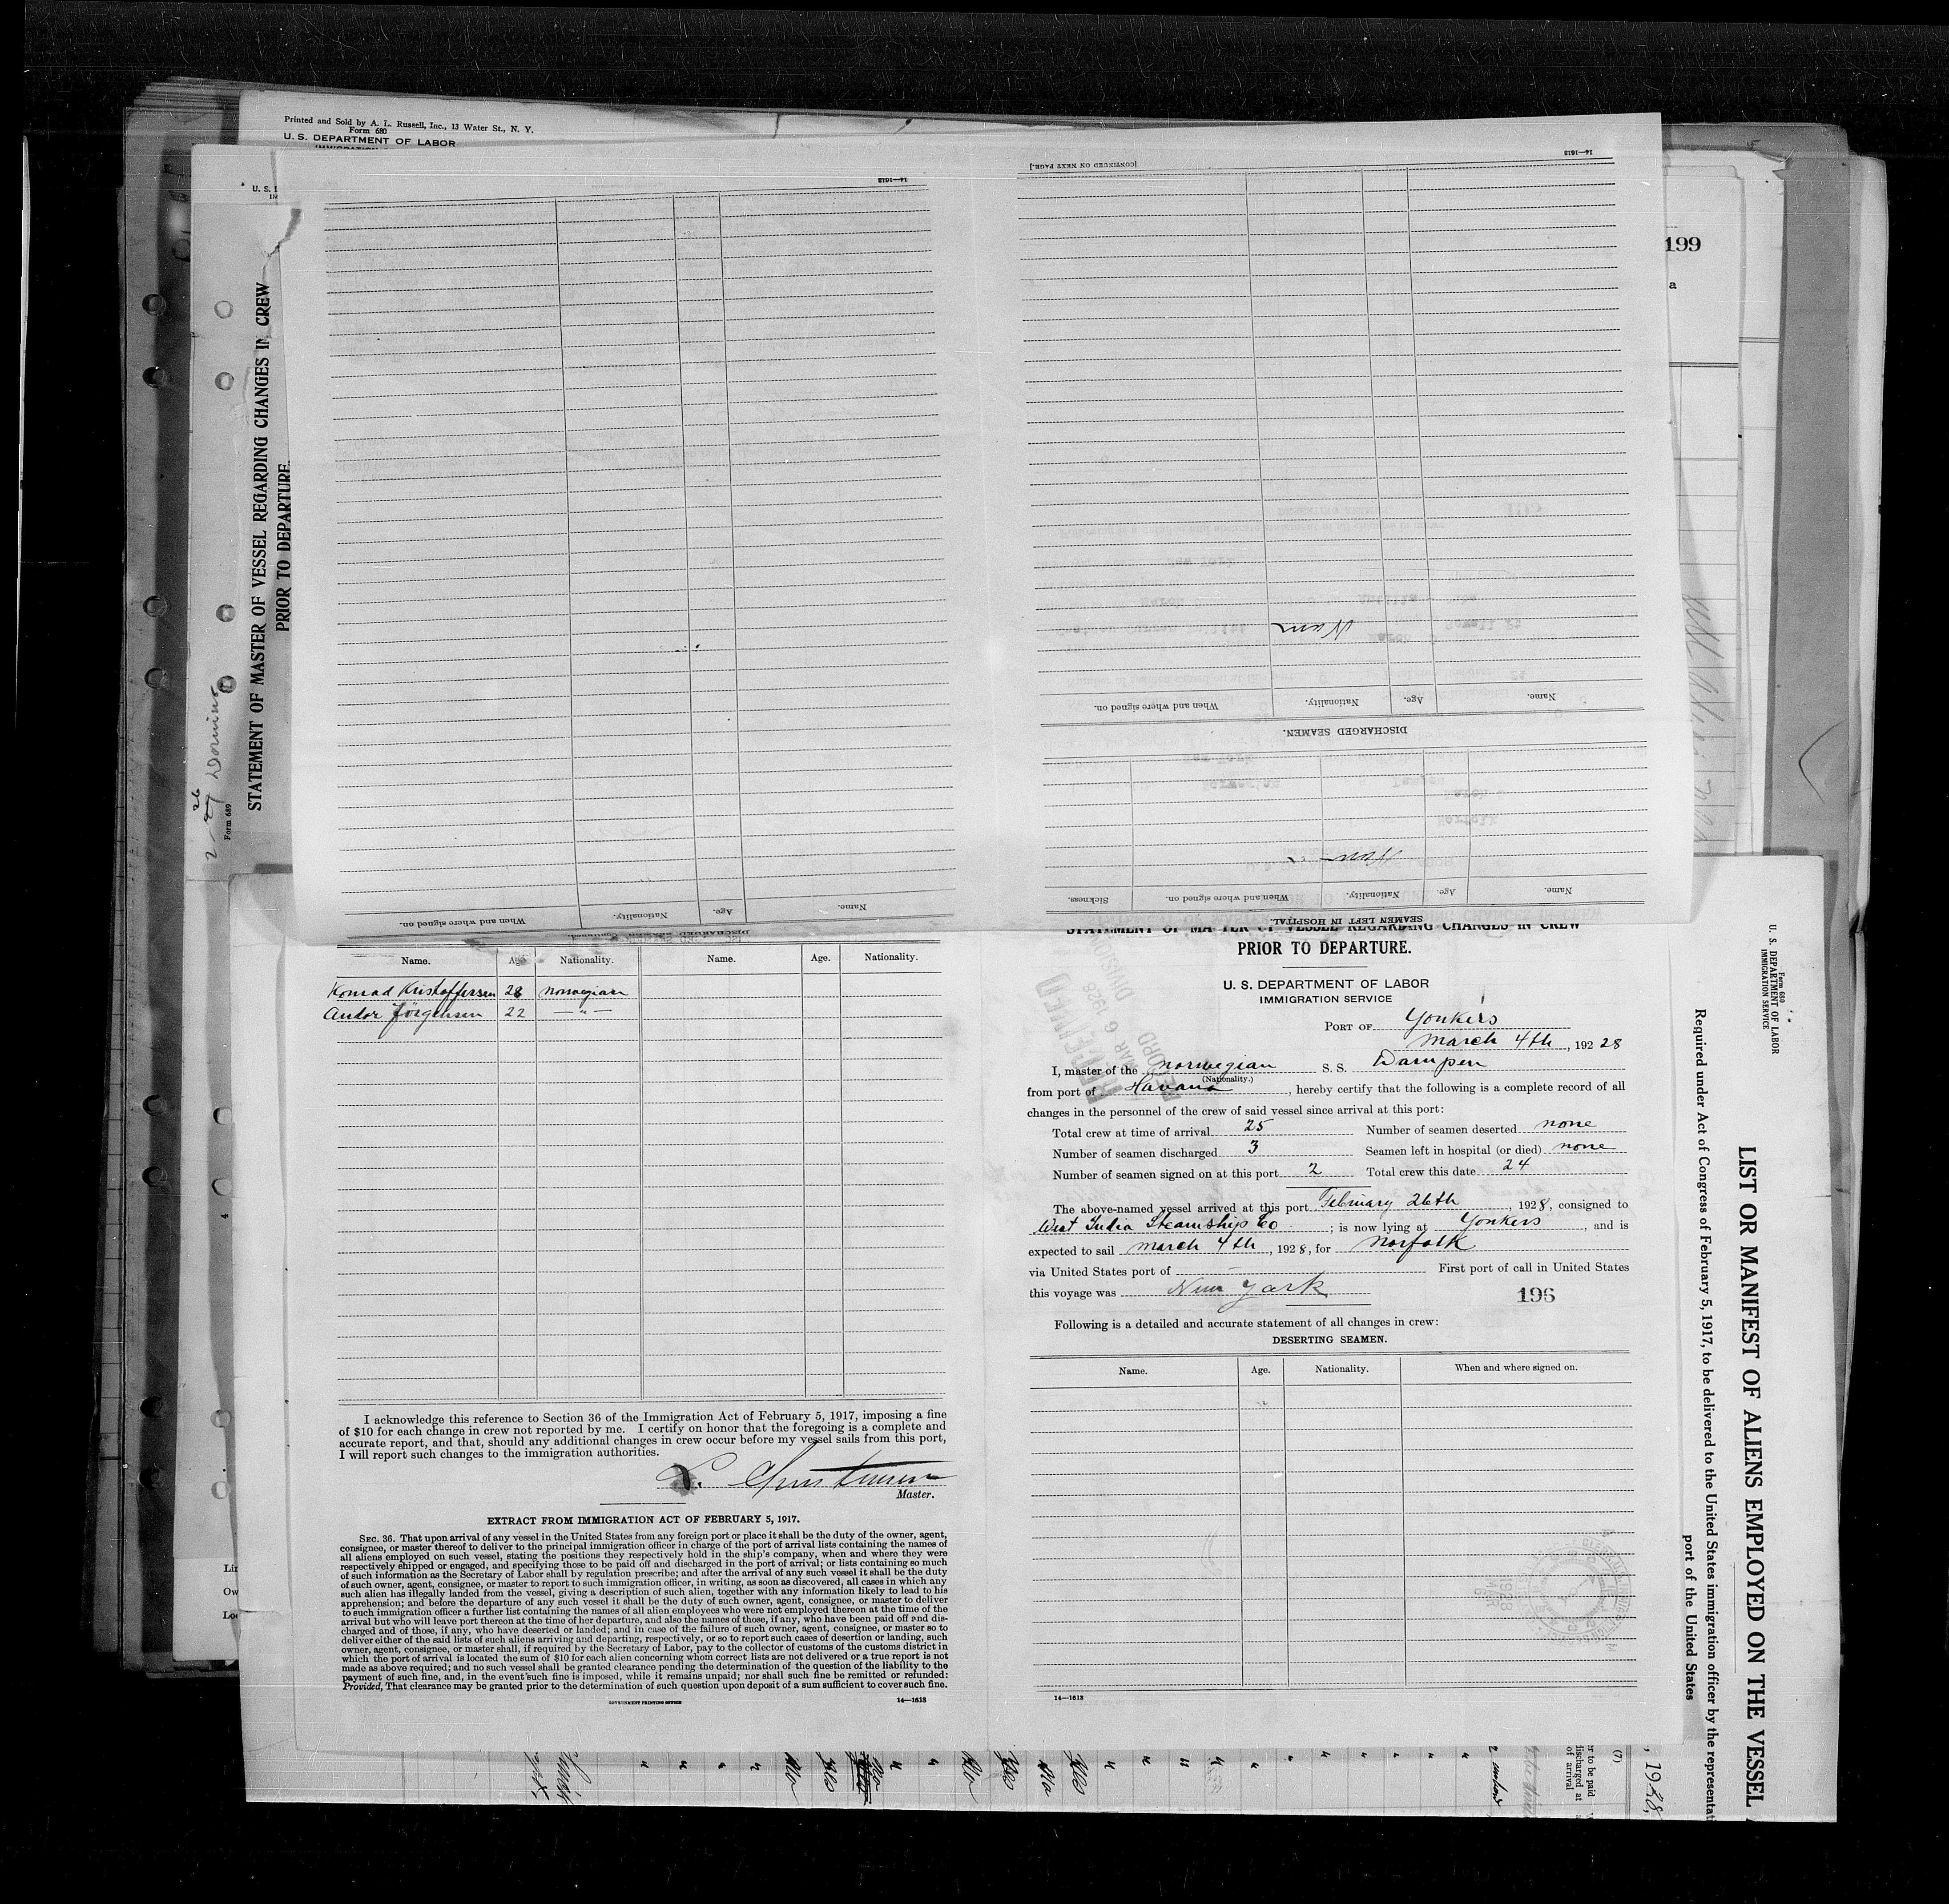 Printed and Sold by A. L. Russell, Inc., 13 Water St., N. Y.
Form 680
U. S. DEPARTMENT OF LABOR
[CONTINUED ON NEXT PAGE.]
14—1613
14—1613
199
a
Form 689
STATEMENT OF MASTER OF VESSEL REGARDING CHANGES IN CREW
PRIOR TO DEPARTURE.
Name. Age. Nationality. When and where signed on.
DISCHARGED SEAMEN.
Name. Age. Nationality. When and where signed on.
DISCHARGED SEAMEN.
Name. Age. Nationality. When and where signed on. Sickness.
SEAMEN LEFT IN HOSPITAL.
Name. Age. Nationality. Name. Age. Nationality.
Konrad Kristoffersen 28 norwegian
Andor Jörgensen 22 — " —
I acknowledge this reference to Section 36 of the Immigration Act of February 5, 1917, imposing a fine
of $10 for each change in crew not reported by me. I certify on honor that the foregoing is a complete and
accurate report, and that, should any additional changes in crew occur before my vessel sails from this port,
I will report such changes to the immigration authorities.
Master.
EXTRACT FROM IMMIGRATION ACT OF FEBRUARY 5, 1917.
SEC. 36. That upon arrival of any vessel in the United States from any foreign port or place it shall be the duty of the owner, agent,
consignee, or master thereof to deliver to the principal immigration officer in charge of the port of arrival lists containing the names of
all aliens employed on such vessel, stating the positions they respectively hold in the ship's company, when and where they were
respectively shipped or engaged, and specifying those to be paid off and discharged in the port of arrival; or lists containing so much
of such information as the Secretary of Labor shall by regulation prescribe; and after the arrival of any such vessel it shall be the duty
of such owner, agent, consignee, or master to report to such immigration officer, in writing, as soon as discovered, all cases in which any
such alien has illegally landed from the vessel, giving a description of such alien, together with any information likely to lead to his
apprehension; and before the departure of any such vessel it shall be the duty of such owner, agent, consignee, or master to deliver
to such immigration officer a further list containing the names of all alien employees who were not employed thereon at the time of the
arrival but who will leave port thereon at the time of her departure, and also the names of those, if any, who have been paid off and dis-
charged and of those, if any, who have deserted or landed; and in case of the failure of such owner, agent, consignee, or master so to
deliver either of the said lists of such aliens arriving and departing, respectively, or so to report such cases of desertion or landing, such
owner, agent, consignee, or master shall, if required by the Secretary of Labor, pay to the collector of customs of the customs district in
which the port of arrival is located the sum of $10 for each alien concerning whom correct lists are not delivered or a true report is not
made as above required; and no such vessel shall be granted clearance pending the determination of the question of the liability to the
payment of such fine, and, in the event such fine is imposed, while it remains unpaid; nor shall such fine be remitted or refunded:
Provided, That clearance may be granted prior to the determination of such question upon deposit of a sum sufficient to cover such fine.
GOVERNMENT PRINTING OFFICE 14—1613
STATEMENT OF MASTER OF VESSEL REGARDING CHANGES IN CREW
PRIOR TO DEPARTURE.
U. S. DEPARTMENT OF LABOR
IMMIGRATION SERVICE
PORT OF Yonkers
March 4th, 1928
I, master of the norwegian S. S. Dampen
(Nationality.)
from port of Havana, hereby certify that the following is a complete record of all
changes in the personnel of the crew of said vessel since arrival at this port:
Total crew at time of arrival 25 Number of seamen deserted none
Number of seamen discharged 3 Seamen left in hospital (or died) none
Number of seamen signed on at this port 2 Total crew this date 24
The above-named vessel arrived at this port February 26th, 1928, consigned to
West India Steamship Co; is now lying at Yonkers, and is
expected to sail march 4th, 1928, for Norfolk
via United States port of — First port of call in United States
this voyage was New York
196
Following is a detailed and accurate statement of all changes in crew:
DESERTING SEAMEN.
Name. Age. Nationality. When and where signed on.
14—1613
RECEIVED
MAR 6 1928
Form 689
U. S. DEPARTMENT OF LABOR
IMMIGRATION SERVICE
LIST OR MANIFEST OF ALIENS EMPLOYED ON THE VESSEL
Required under Act of Congress of February 5, 1917, to be delivered to the United States immigration officer by the representat
port of the United States
(7)
, 1928,